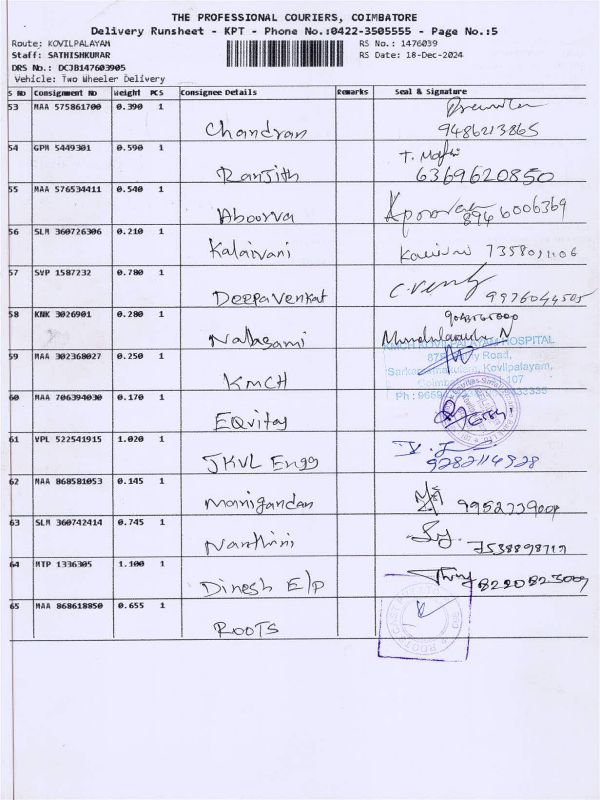 THE PROFESSIONAL COURIERS, COIMBATORE
Delivery Runsheet - KPT - Phone No.:0422-3505555 - Page No.:5
Route: KOVILPALAYAM RS No.: 1476039
Staff: SATHISHKUMAR RS Date: 18-Dec-2024
DRS No.: DCJB147603905
Vehicle: Two Wheeler Delivery
S No Consignment No Weight PCS Consignee Details Remarks Seal & Signature
53 MAA 575861700 0.390 1
Chandran 9486213865
54 GPM 5449301 0.590 1
Ranjith 6369620850
55 MAA 576534411 0.540 1
Aboorva 8946006369
56 SLM 360726306 0.210 1
Kalaivani
57 SVP 1587232 0.780 1
Deepa Venkat C.Venky
58 KNK 3026901 0.280 1
Nallasami
59 MAA 302368027 0.250 1
KMCH
KOVILPALAYAM HOSPITAL
Road,
Kovilpalayam,
60 MAA 706394030 0.170 1
EQvitas
61 VPL 522541915 1.020 1
JKVL Engg 9282114928
62 MAA 868581053 0.145 1
Manigandan
63 SLM 360742414 0.745 1
Nanthini
64 MTP 1336305 1.100 1
Dinesh E/p
65 MAA 868618850 0.655 1
ROOTS